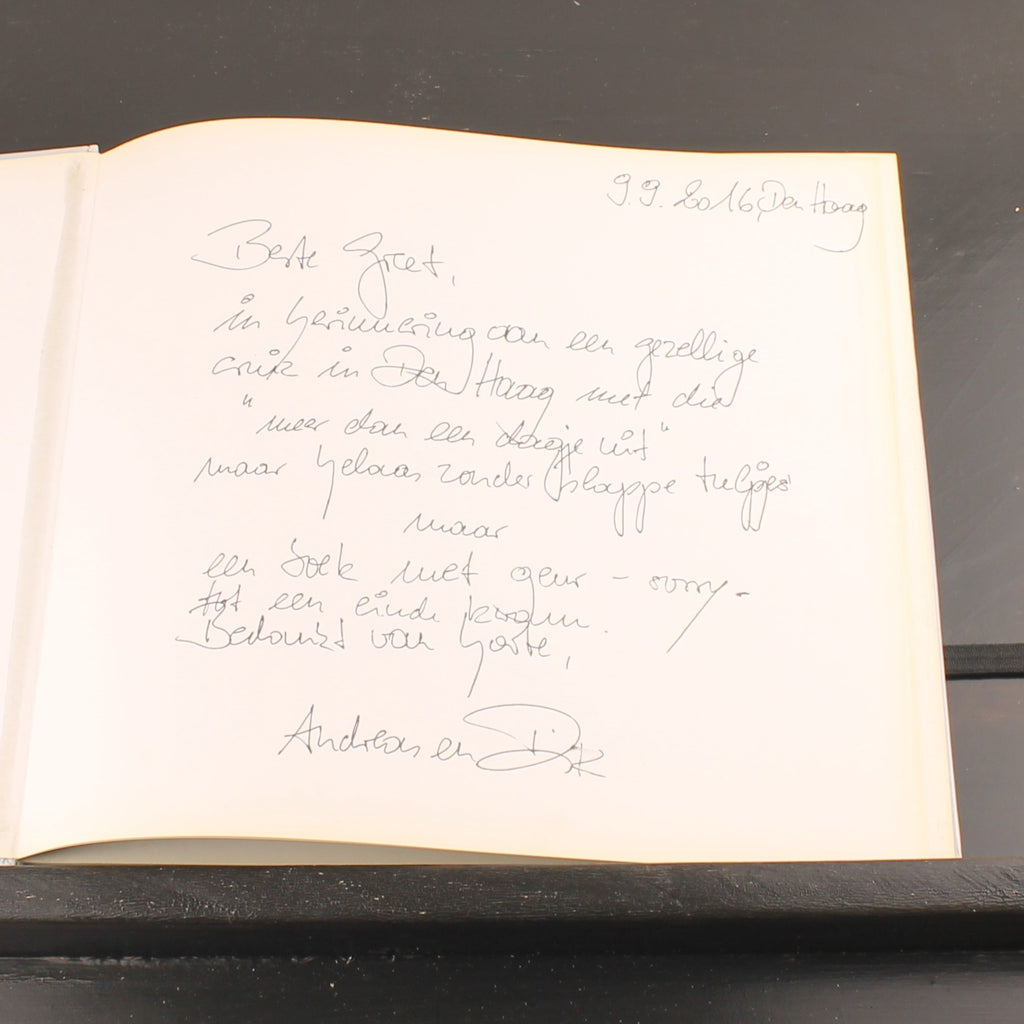 9.9.2016, Den Haag
Beste Griet,
in herinnering aan een gezellige
cruiz in Den Haag met die
"meer dan een dagje uit"
maar helaas zonder slappe tulpjes
maar
een boek met geur - sorry -
tot een einde kwam.
Bedankt van harte,
Andreas en Dirk